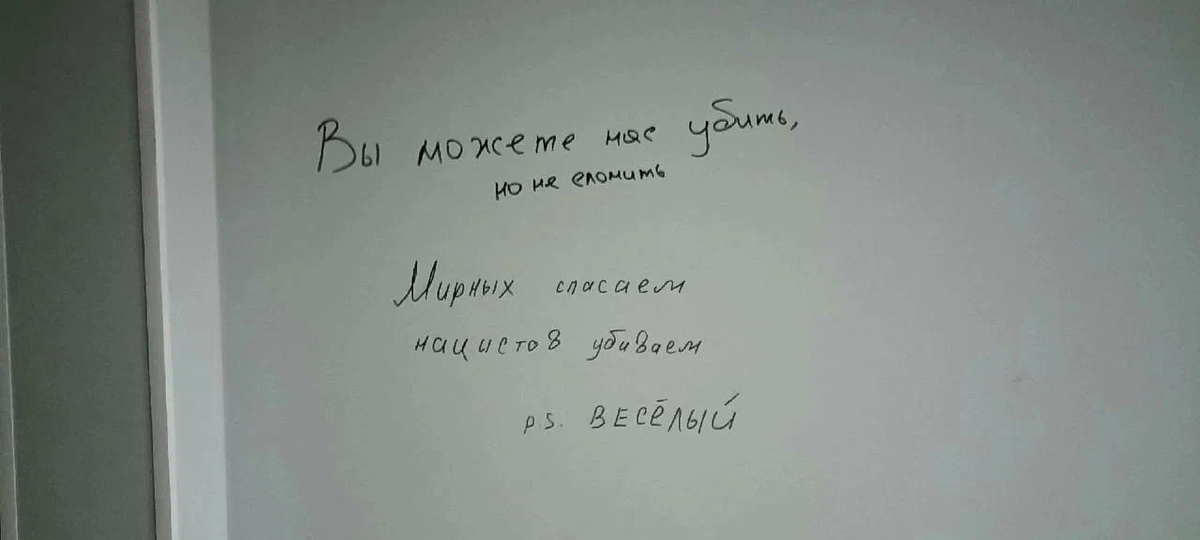 Вы можете нас убить,
но не сломить
Мирных спасаем
нацистов убиваем
p.s. ВЕСЁЛЫЙ